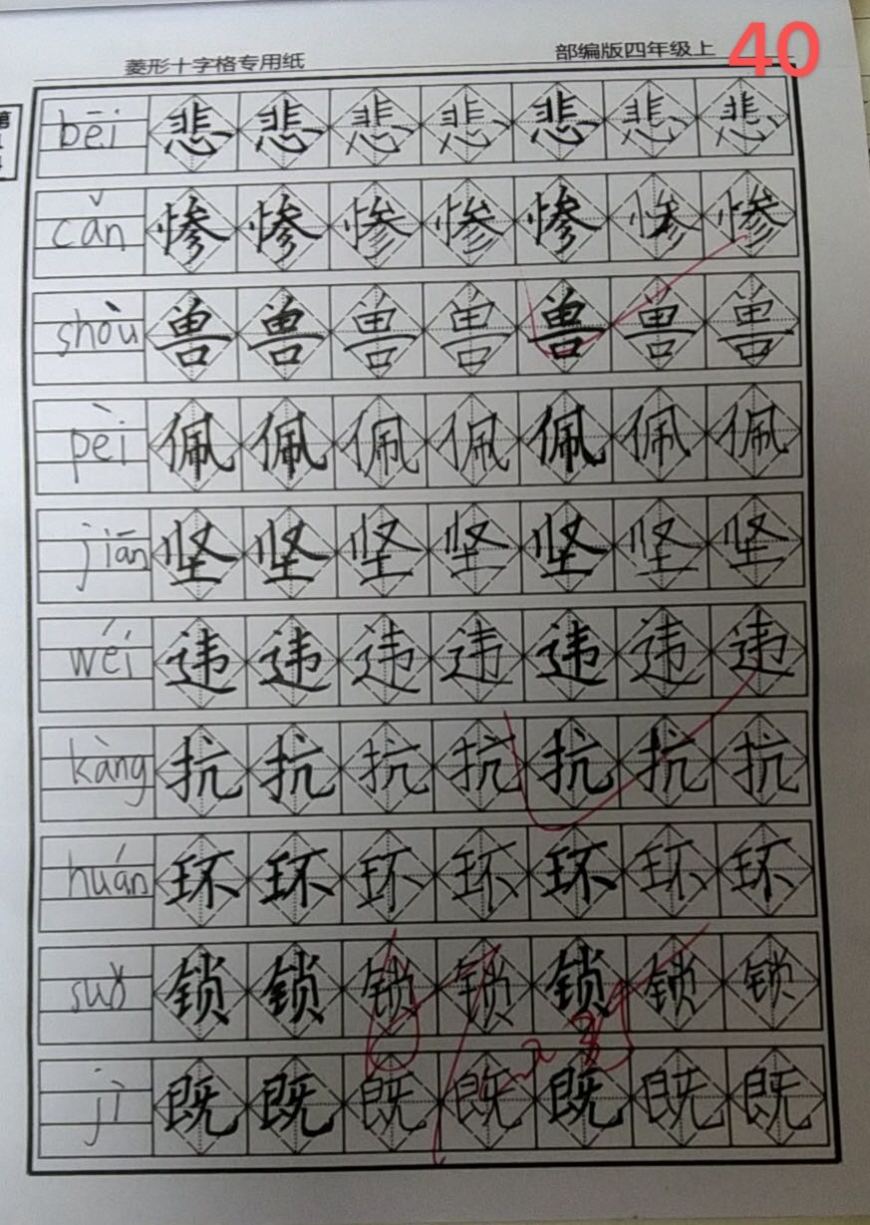 菱形十字格专用纸 部编版四年级上 40
bēi 悲 悲 悲 悲 悲 悲 悲
cǎn 惨 惨 惨 惨 惨 惨 惨
shòu 兽 兽 兽 兽 兽 兽 兽
pèi 佩 佩 佩 佩 佩 佩 佩
jiān 坚 坚 坚 坚 坚 坚 坚
wéi 违 违 违 违 违 违 违
kàng 抗 抗 抗 抗 抗 抗 抗
huán 环 环 环 环 环 环 环
suǒ 锁 锁 锁 锁 锁 锁 锁
jì 既 既 既 既 既 既 既